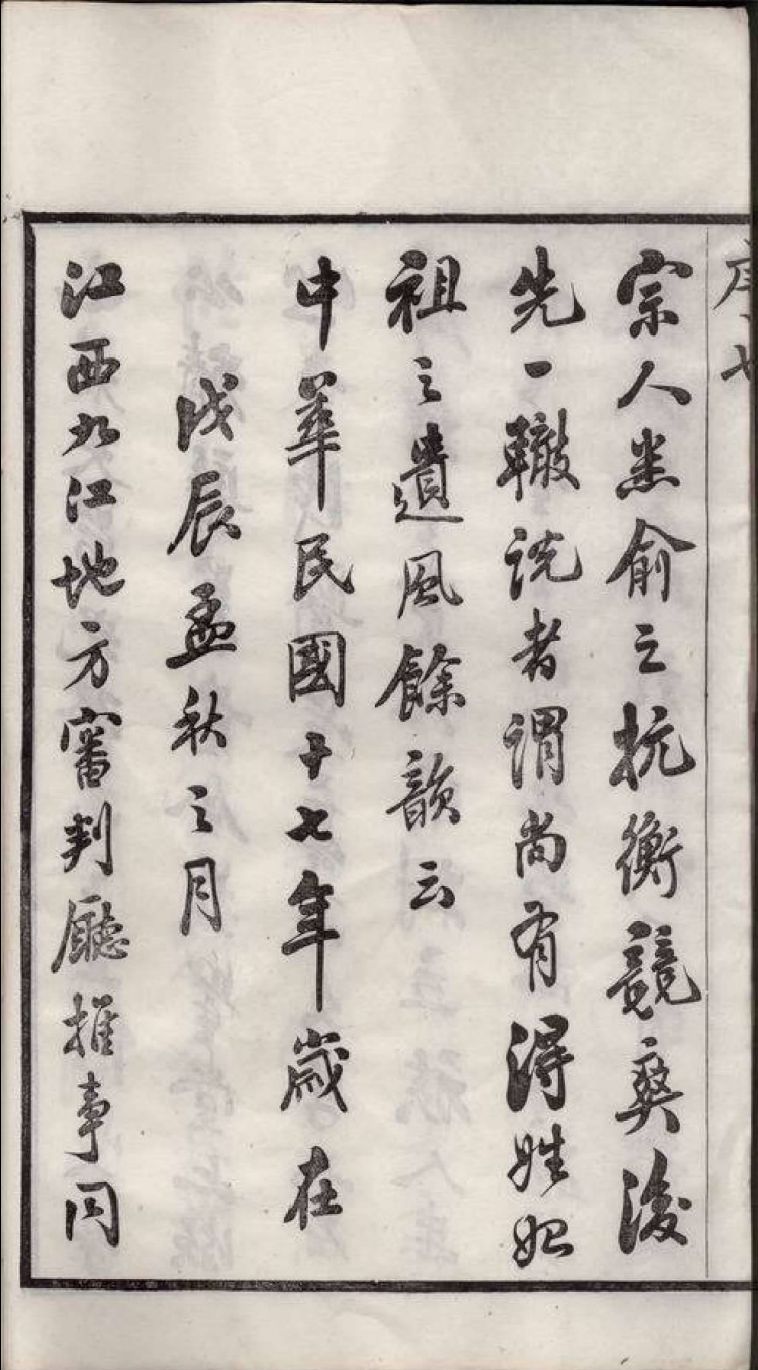 序 七
宗人悉俞之抗衡競爽後
先一轍說者謂尚有得姓始
祖之遺風餘韻云
中華民國十七年歲在
戊辰孟秋之月
江西九江地方審判廳推事同